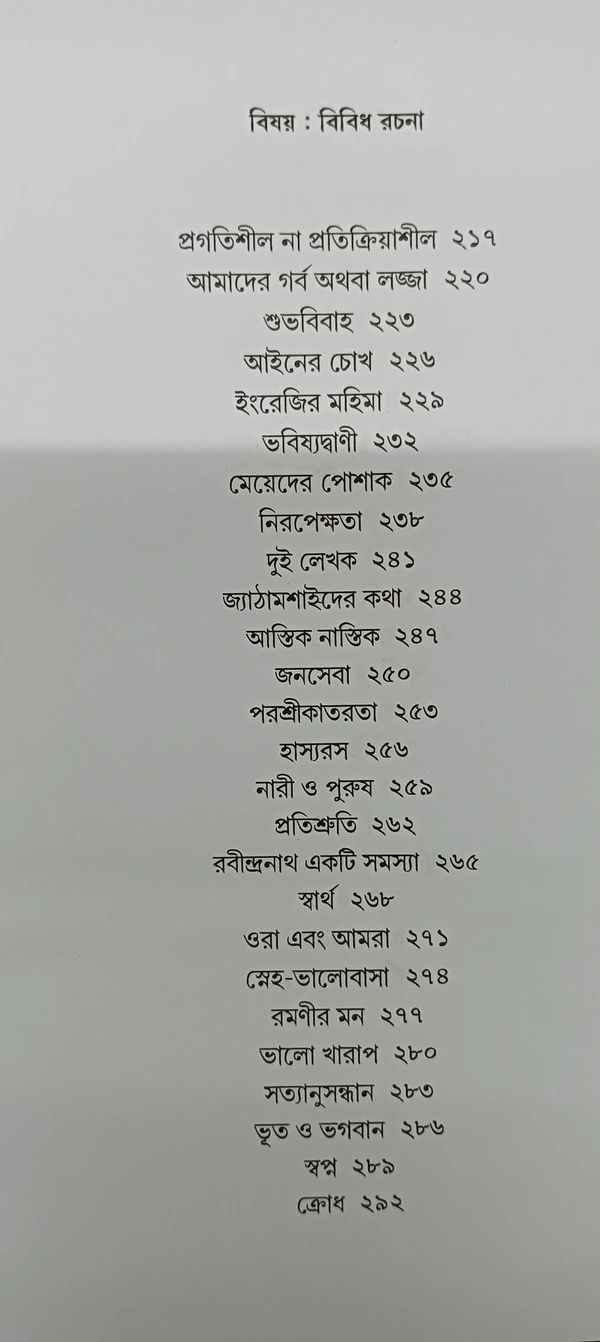 বিষয় : বিবিধ রচনা
প্রগতিশীল না প্রতিক্রিয়াশীল ২১৭
আমাদের গর্ব অথবা লজ্জা ২২০
শুভবিবাহ ২২৩
আইনের চোখ ২২৬
ইংরেজির মহিমা ২২৯
ভবিষ্যদ্বাণী ২৩২
মেয়েদের পোশাক ২৩৫
নিরপেক্ষতা ২৩৮
দুই লেখক ২৪১
জ্যাঠামশাইদের কথা ২৪৪
আস্তিক নাস্তিক ২৪৭
জনসেবা ২৫০
পরশ্রীকাতরতা ২৫৩
হাস্যরস ২৫৬
নারী ও পুরুষ ২৫৯
প্রতিশ্রুতি ২৬২
রবীন্দ্রনাথ একটি সমস্যা ২৬৫
স্বার্থ ২৬৮
ওরা এবং আমরা ২৭১
স্নেহ-ভালোবাসা ২৭৪
রমণীর মন ২৭৭
ভালো খারাপ ২৮০
সত্যানুসন্ধান ২৮৩
ভূত ও ভগবান ২৮৬
স্বপ্ন ২৮৯
ক্রোধ ২৯২